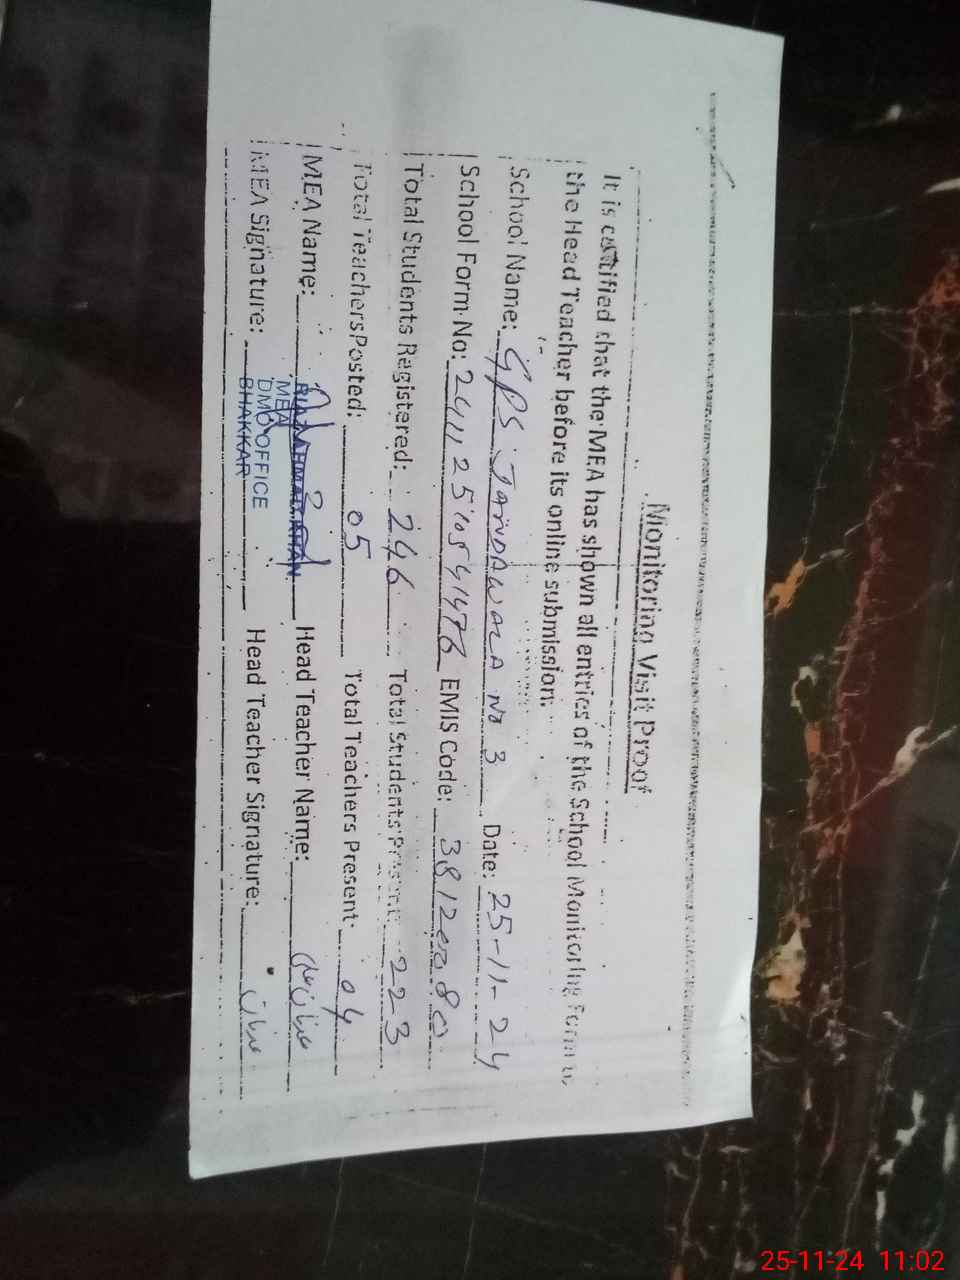 Monitoring Visit Proof
It is certified that the MEA has shown all entries of the School Monitoring Form to
the Head Teacher before its online submission.
School Name: GPS JANDAWALA No 3 Date: 25-11-24
School Form No: EMIS Code:
Total Students Registered: 246 Total Students Present: 223
Total Teachers Posted: 05 Total Teachers Present: 04
MEA Name: Head Teacher Name:
MEA
DMO OFFICE
BHAKKAR
MEA Signature: Head Teacher Signature:
25-11-24 11:02